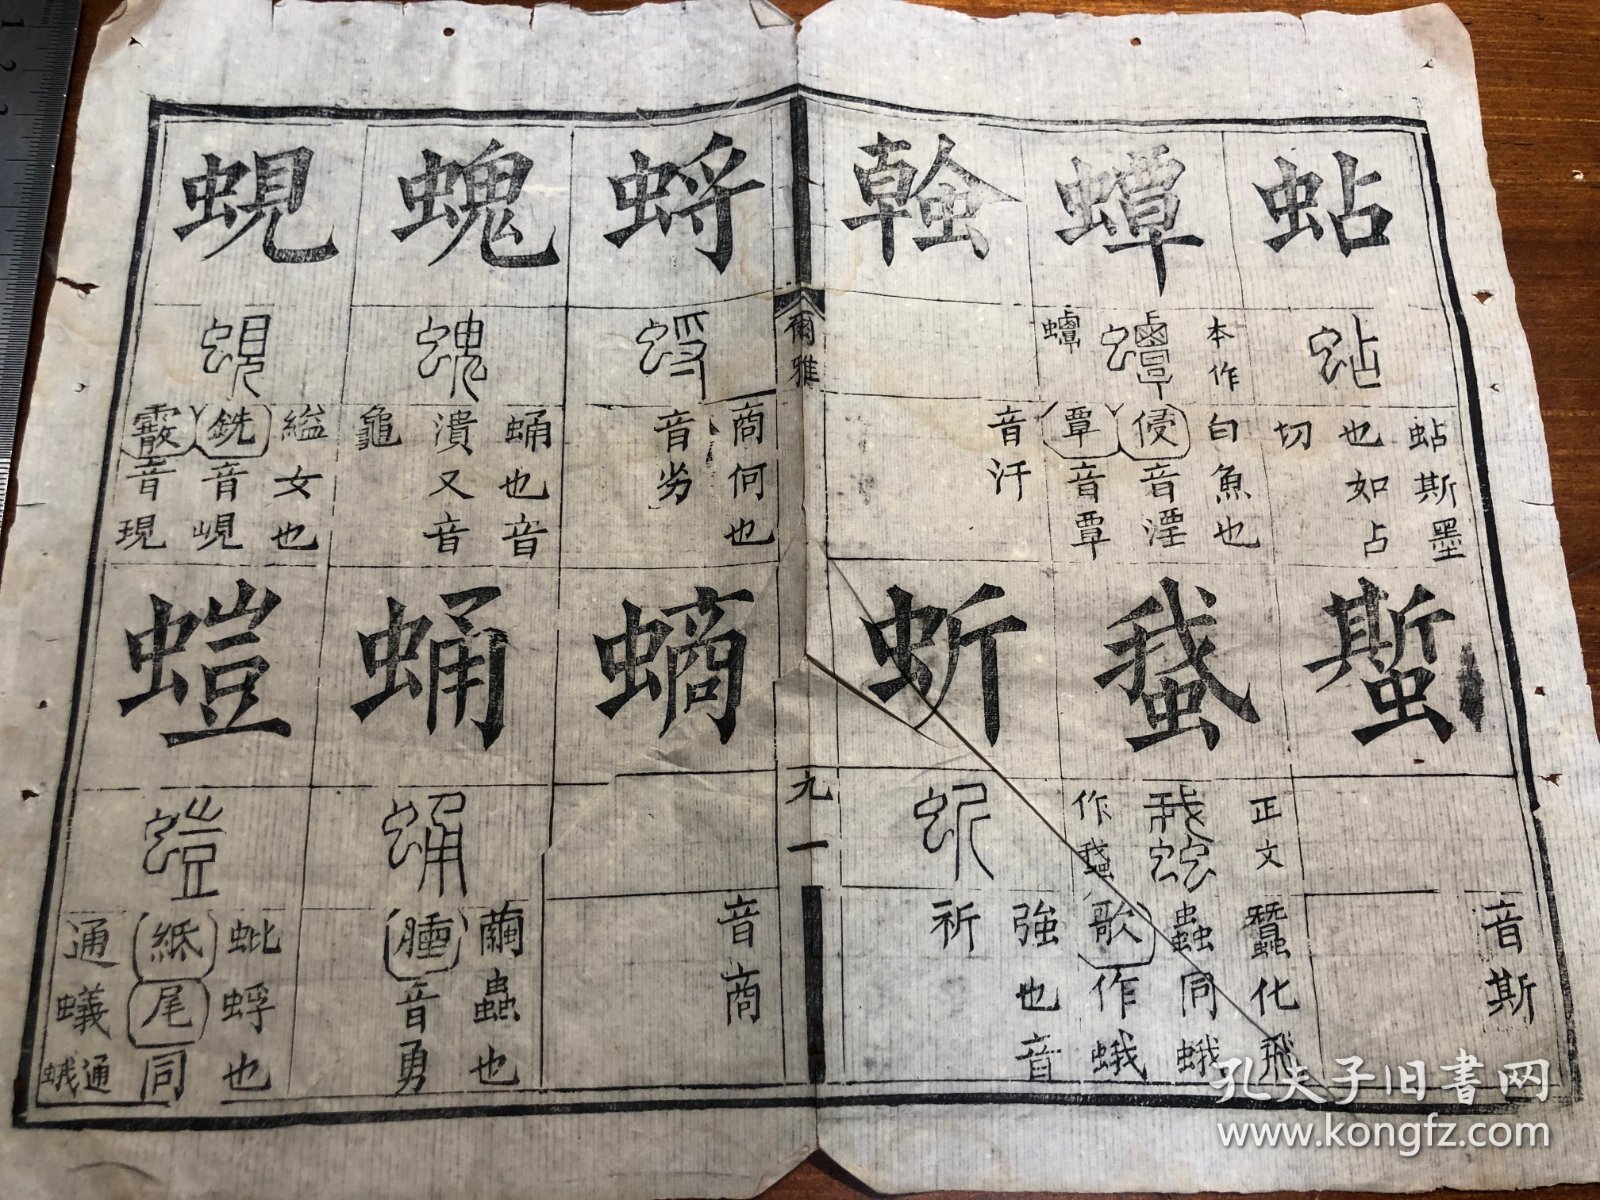 蛅
蛅
蛅斯墨
也如占
切
蟫
本作
蟫
白魚也
侵音淫
覃音覃
螒
音汗
螹
音斯
正文
作
蠶化飛
蟲同蛾
歌作蛾
蚚
蚚
強也音
祈
爾雅
九一
蛶
蛶
商何也
音劣
螝
螝
蛹也音
潰又音
龜
蜆
蜆
縊女也
銑音峴
霰音現
螪
音商
蛹
蛹
繭蟲也
腫音勇
螘
螘
蚍蜉也
紙尾同
通蟻
蛾通
孔夫子旧书网
www.kongfz.com